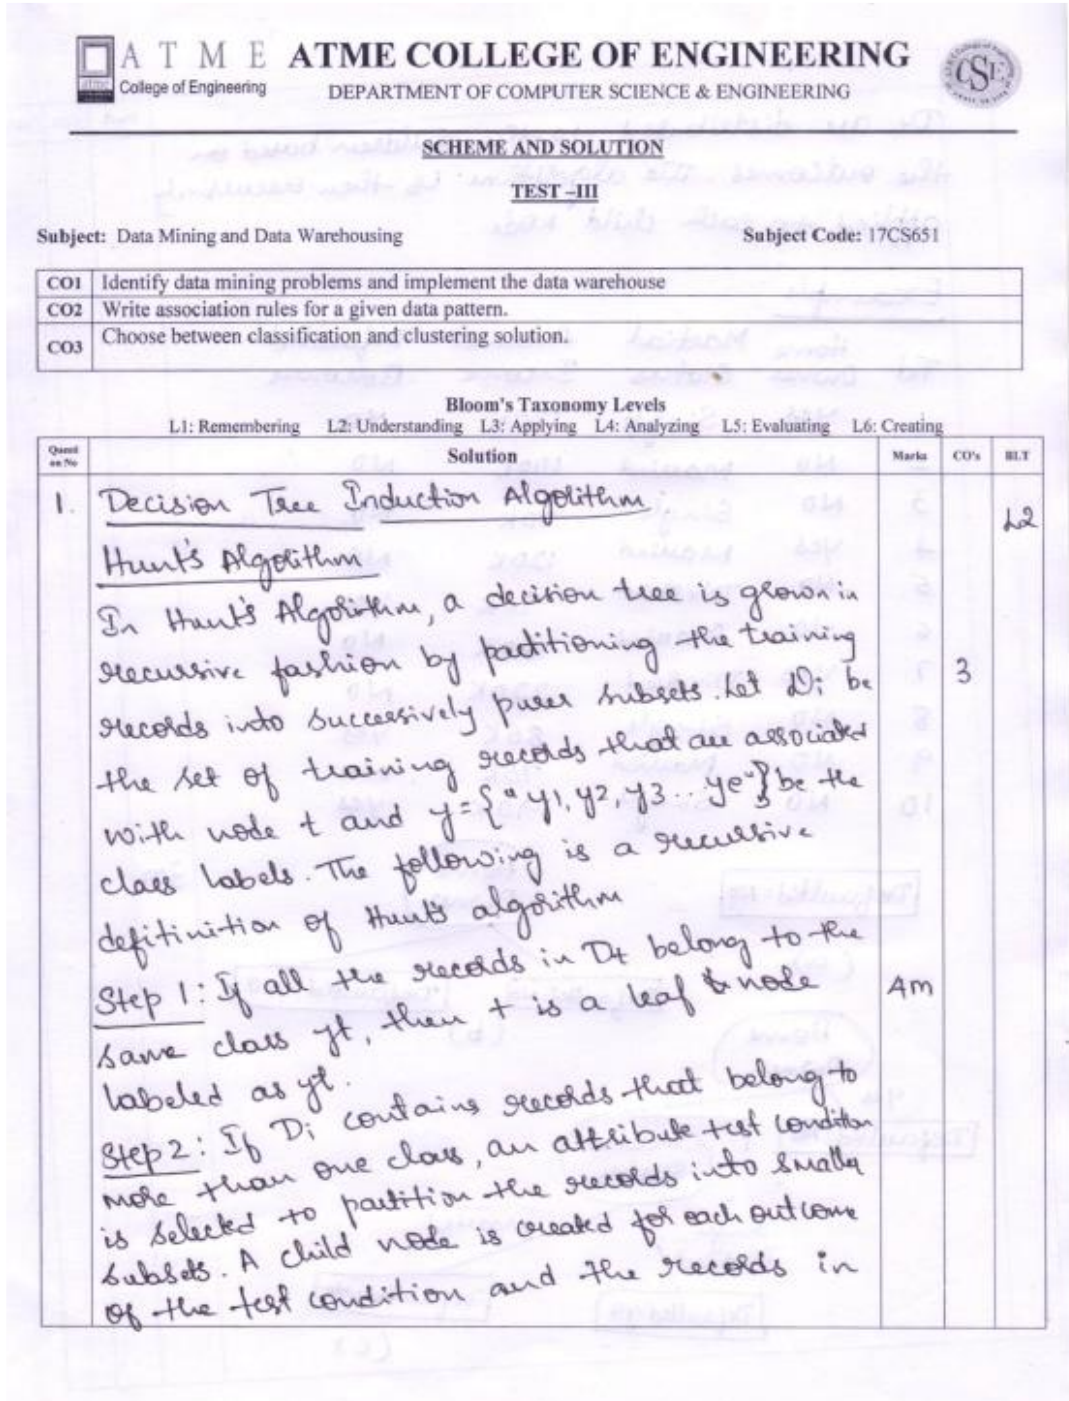 A T M E
College of Engineering
ATME COLLEGE OF ENGINEERING
DEPARTMENT OF COMPUTER SCIENCE & ENGINEERING
CSE
SCHEME AND SOLUTION
TEST –III
Subject: Data Mining and Data Warehousing Subject Code: 17CS651
CO1 Identify data mining problems and implement the data warehouse
CO2 Write association rules for a given data pattern.
CO3 Choose between classification and clustering solution.
Bloom's Taxonomy Levels
L1: Remembering L2: Understanding L3: Applying L4: Analyzing L5: Evaluating L6: Creating
Questi on No Solution Marks CO's BLT
1. Decision Tree Induction Algorithm L2
Hunt's Algorithm
In Hunt's Algorithm, a decision tree is grown in
recursive fashion by partitioning the training
records into successively purer subsets. Let Di be 3
the set of training records that are associated
with node t and y={"y1, y2, y3...ye"} be the
class labels. The following is a recursive
defitinition of Hunt's algorithm
Step 1: If all the records in Dt belong to the
same class yt, then t is a leaf node 4m
labeled as yt.
Step 2: If Di contains records that belong to
more than one class, an attribute test condition
is selected to partition the records into smaller
subsets. A child node is created for each outcome
of the test condition and the records in